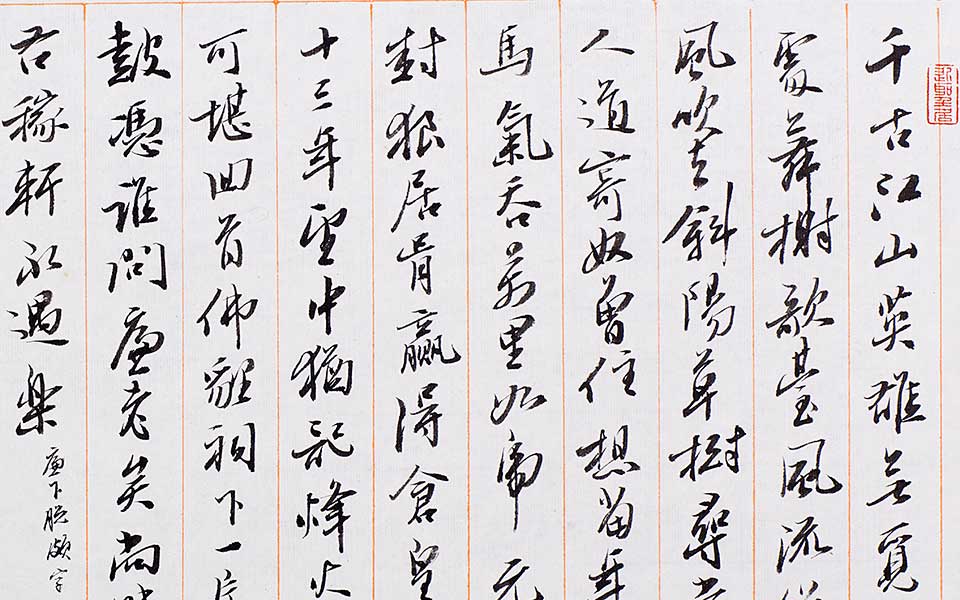 千古江山英雄無覓
處舞榭歌臺風流
風吹去斜陽草樹尋
人道寄奴曾住想當年
馬氣吞萬里如虎 元
封狼居胥贏得倉皇
十三年望中猶記烽火
可堪回首佛貍祠下一片
鼓憑誰問廉老矣尚
右稼軒永遇樂
廉下脫頗字